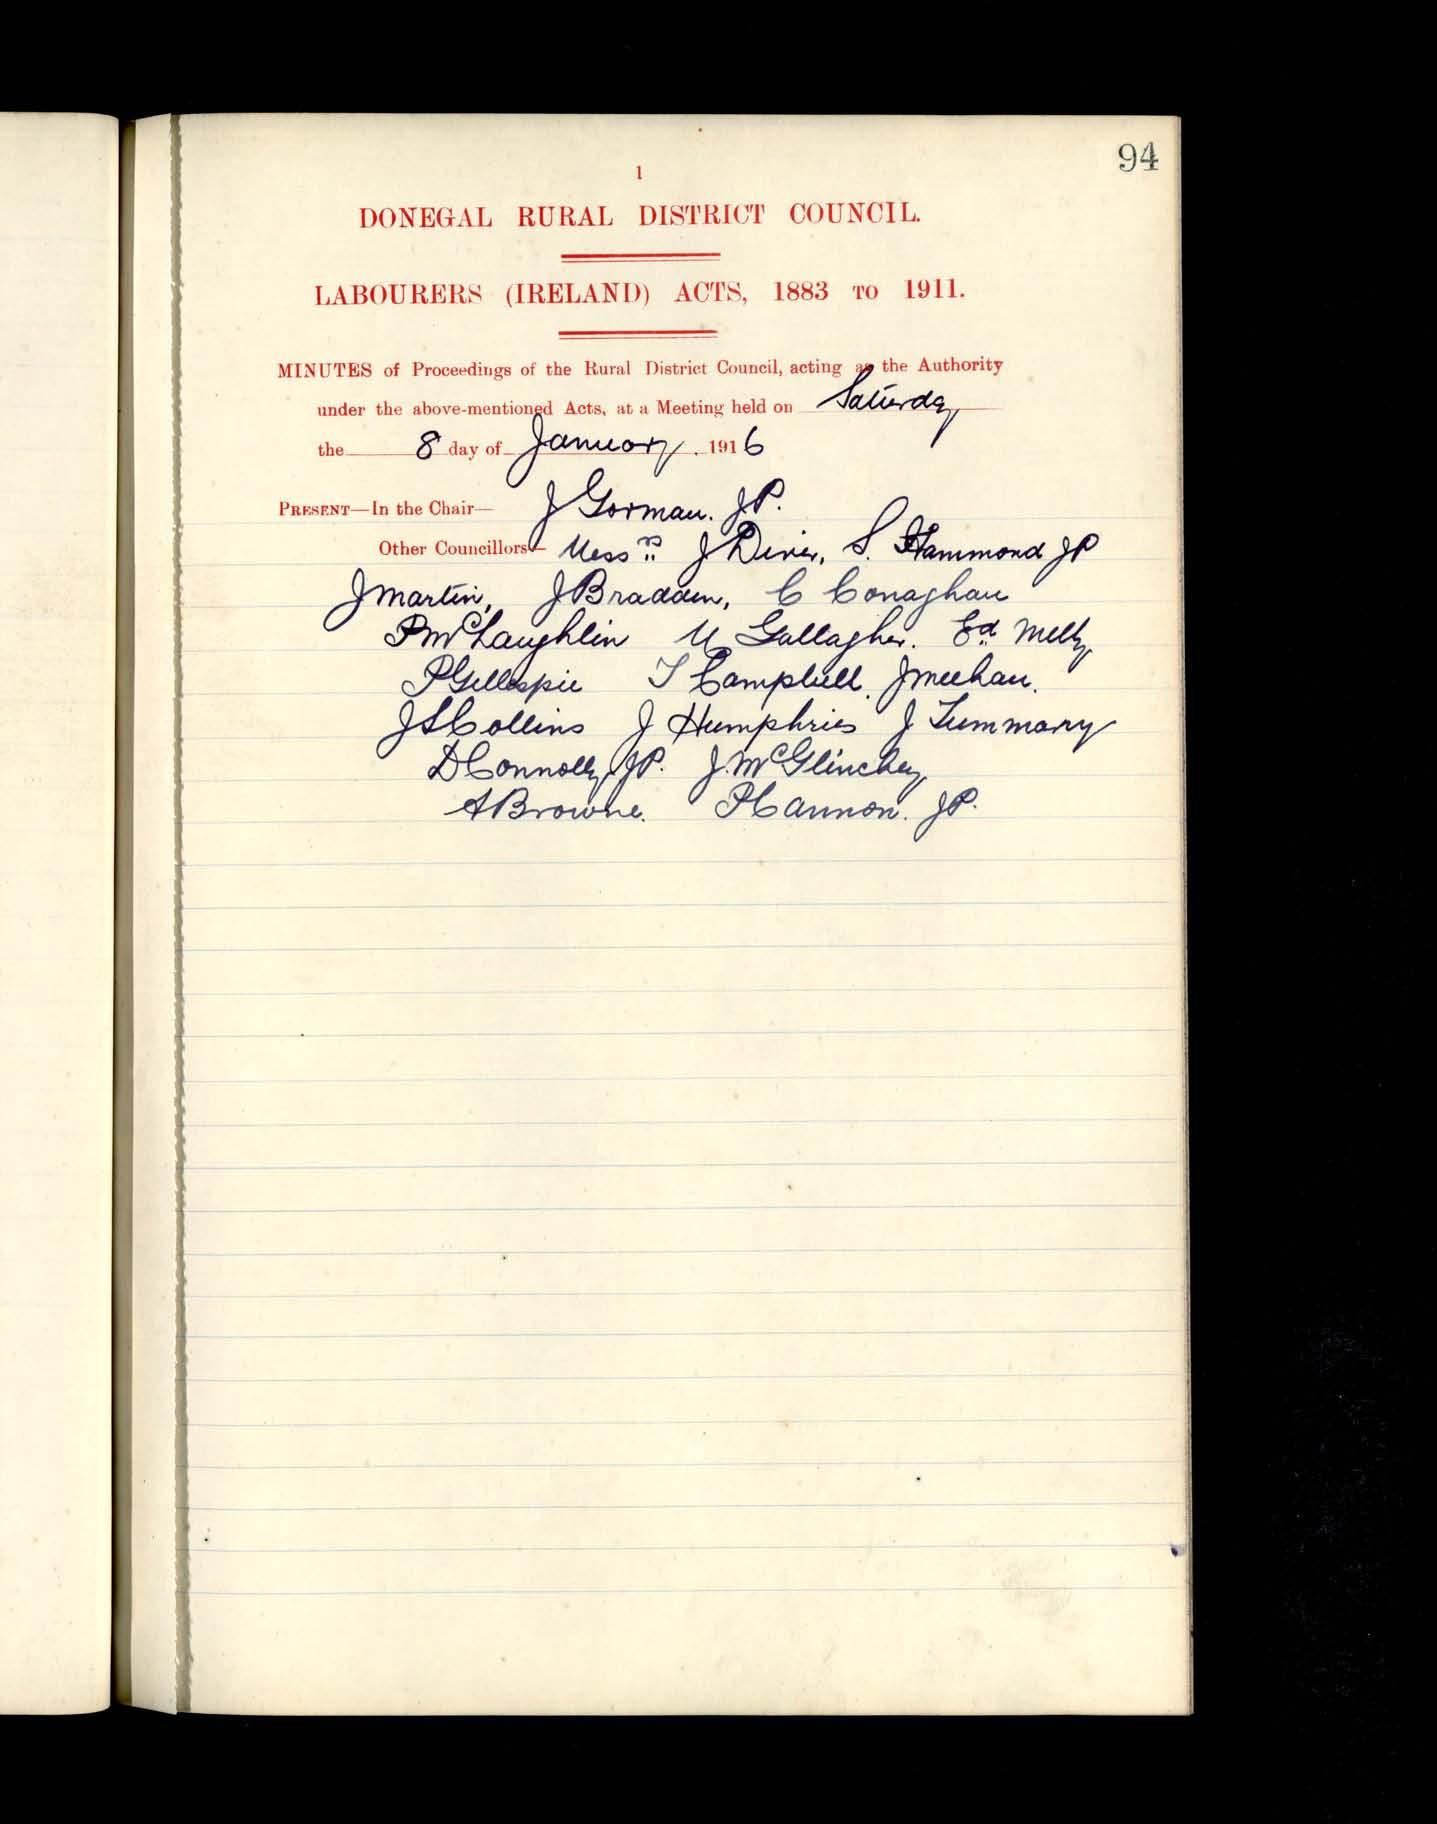 94
1
DONEGAL RURAL DISTRICT COUNCIL.
LABOURERS (IRELAND) ACTS, 1883 TO 1911.
MINUTES of Proceedings of the Rural District Council, acting as the Authority
under the above-mentioned Acts, at a Meeting held on Saturday
the 8 day of January. 1916
PRESENT—In the Chair— J Gorman. JP.
Other Councillors— Messrs J Diver, S. Hammond JP
J Martin, J Bradden, C Conaghan
P McLaughlin M Gallagher. Ed Melly
P Gillespie T Campbell. J Meehan.
J S Collins J Humphries J Tummany
D Connolly JP. J. McGlinchey
A Browne. P Cannon. JP.